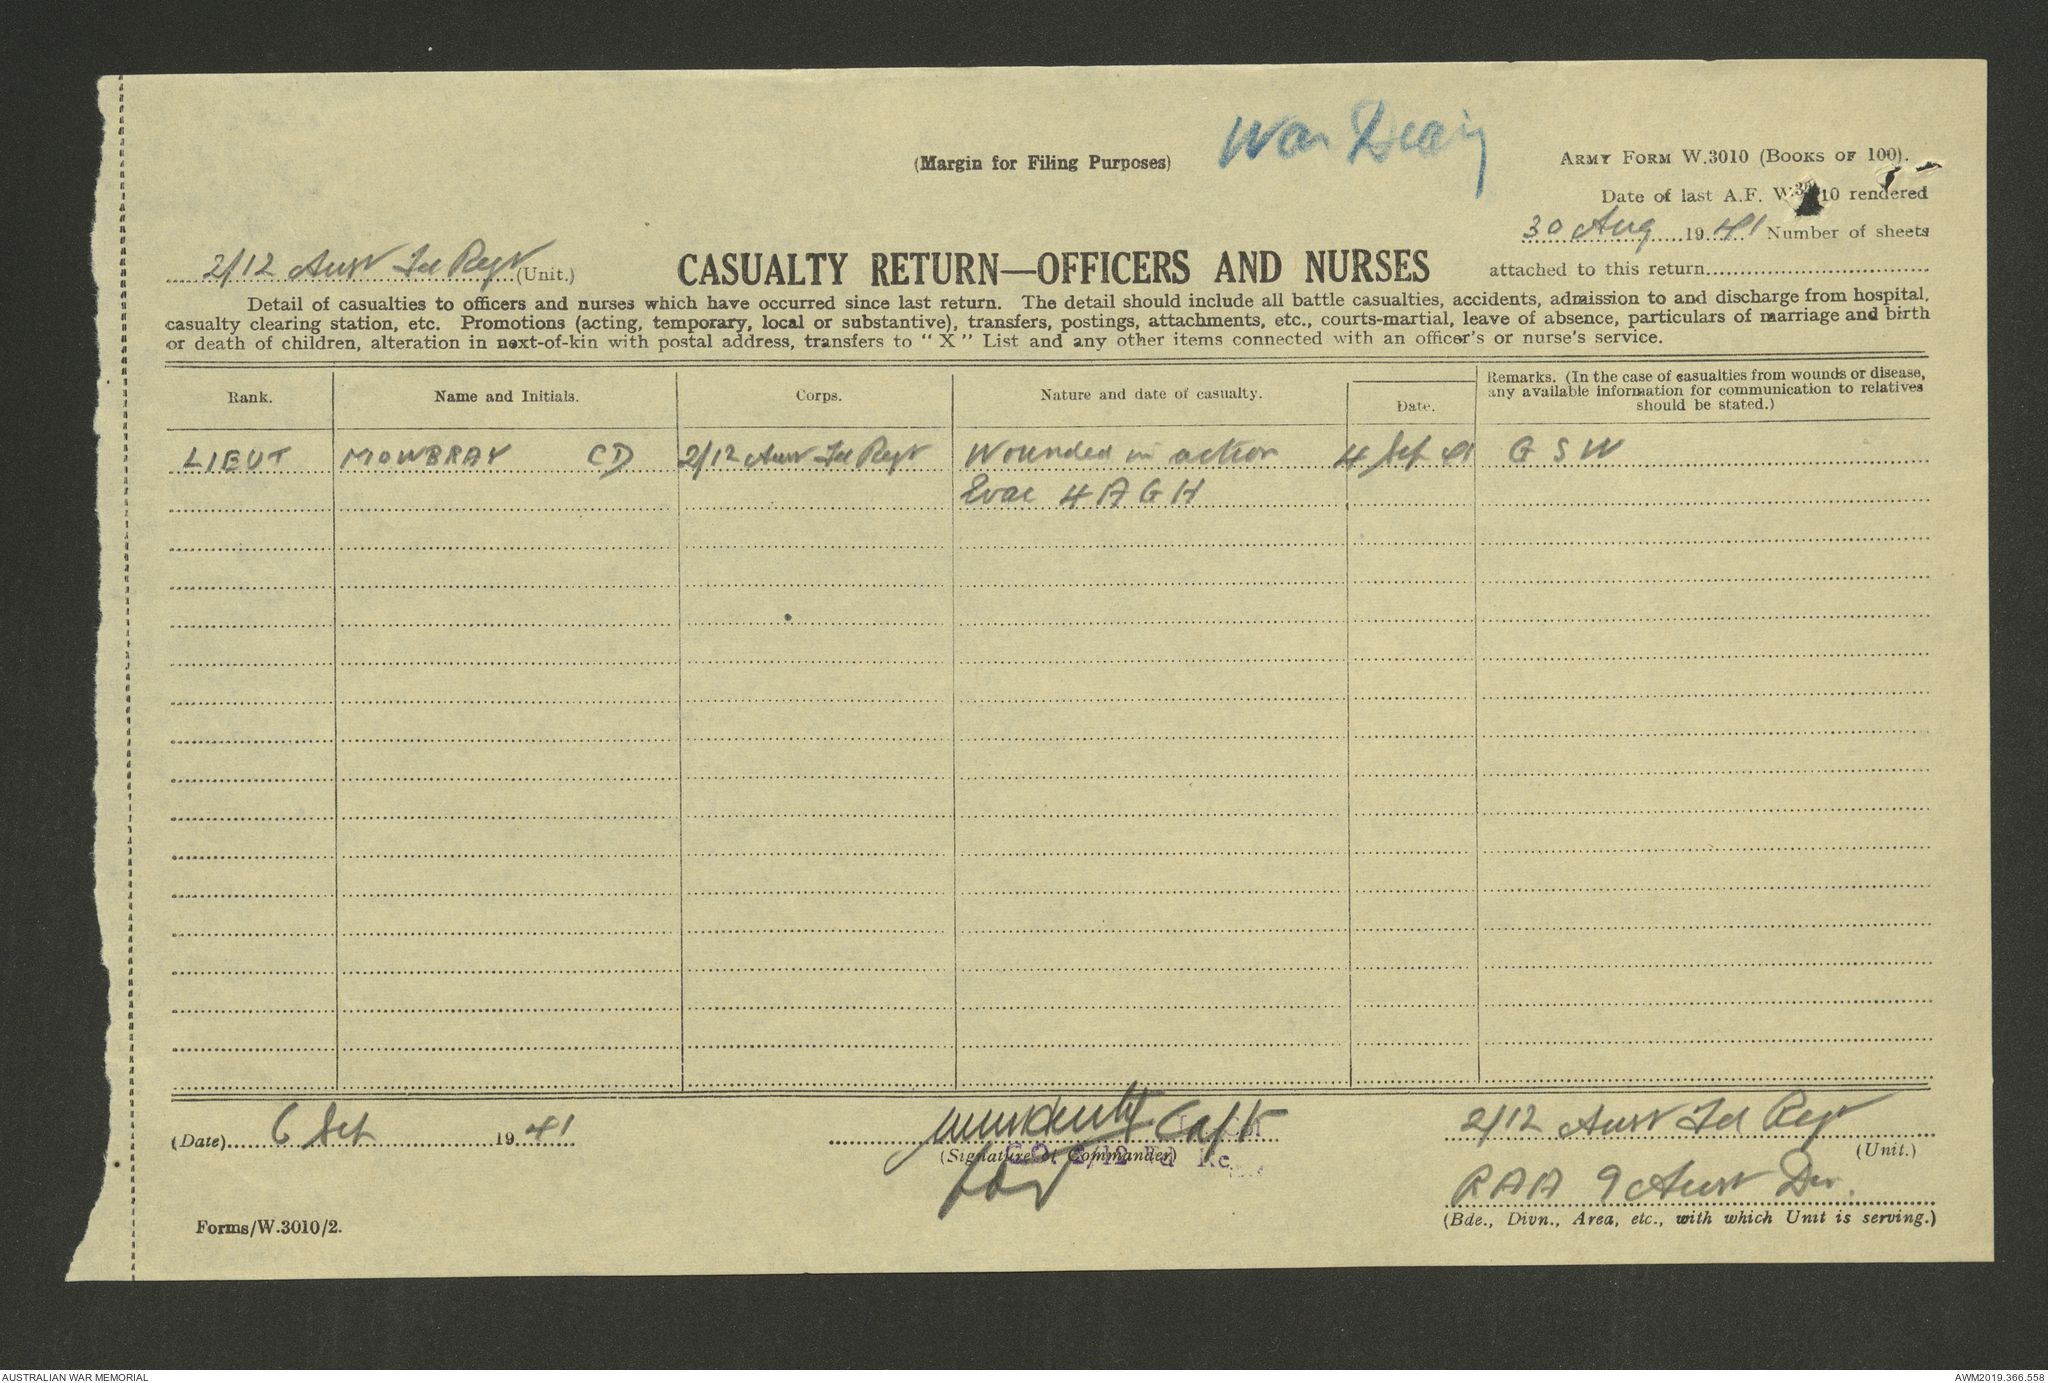 War Diary
(Margin for Filing Purposes)
ARMY FORM W.3010 (BOOKS OF 100).
Date of last A.F. W.3010 rendered
30 Aug 1941 Number of sheets
attached to this return
2/12 Aust Fd Regt (Unit.)
CASUALTY RETURN—OFFICERS AND NURSES
Detail of casualties to officers and nurses which have occurred since last return. The detail should include all battle casualties, accidents, admission to and discharge from hospital,
casualty clearing station, etc. Promotions (acting, temporary, local or substantive), transfers, postings, attachments, etc., courts-martial, leave of absence, particulars of marriage and birth
or death of children, alteration in next-of-kin with postal address, transfers to "X" List and any other items connected with an officer's or nurse's service.
Rank. Name and Initials. Corps. Nature and date of casualty. Date. Remarks. (In the case of casualties from wounds or disease,
any available information for communication to relatives
should be stated.)
LIEUT MOWBRAY CD 2/12 Aust Fd Regt Wounded in action 4 Sep 41 G S W
Evac 4 A G H
(Date) 6 Sep 1941
Capt
(Signature of Commander)
for
2/12 Aust Fd Regt
(Unit.)
RAA 9 Aust Div.
(Bde., Divn., Area, etc., with which Unit is serving.)
Forms/W.3010/2.
AUSTRALIAN WAR MEMORIAL
AWM2019.366.558